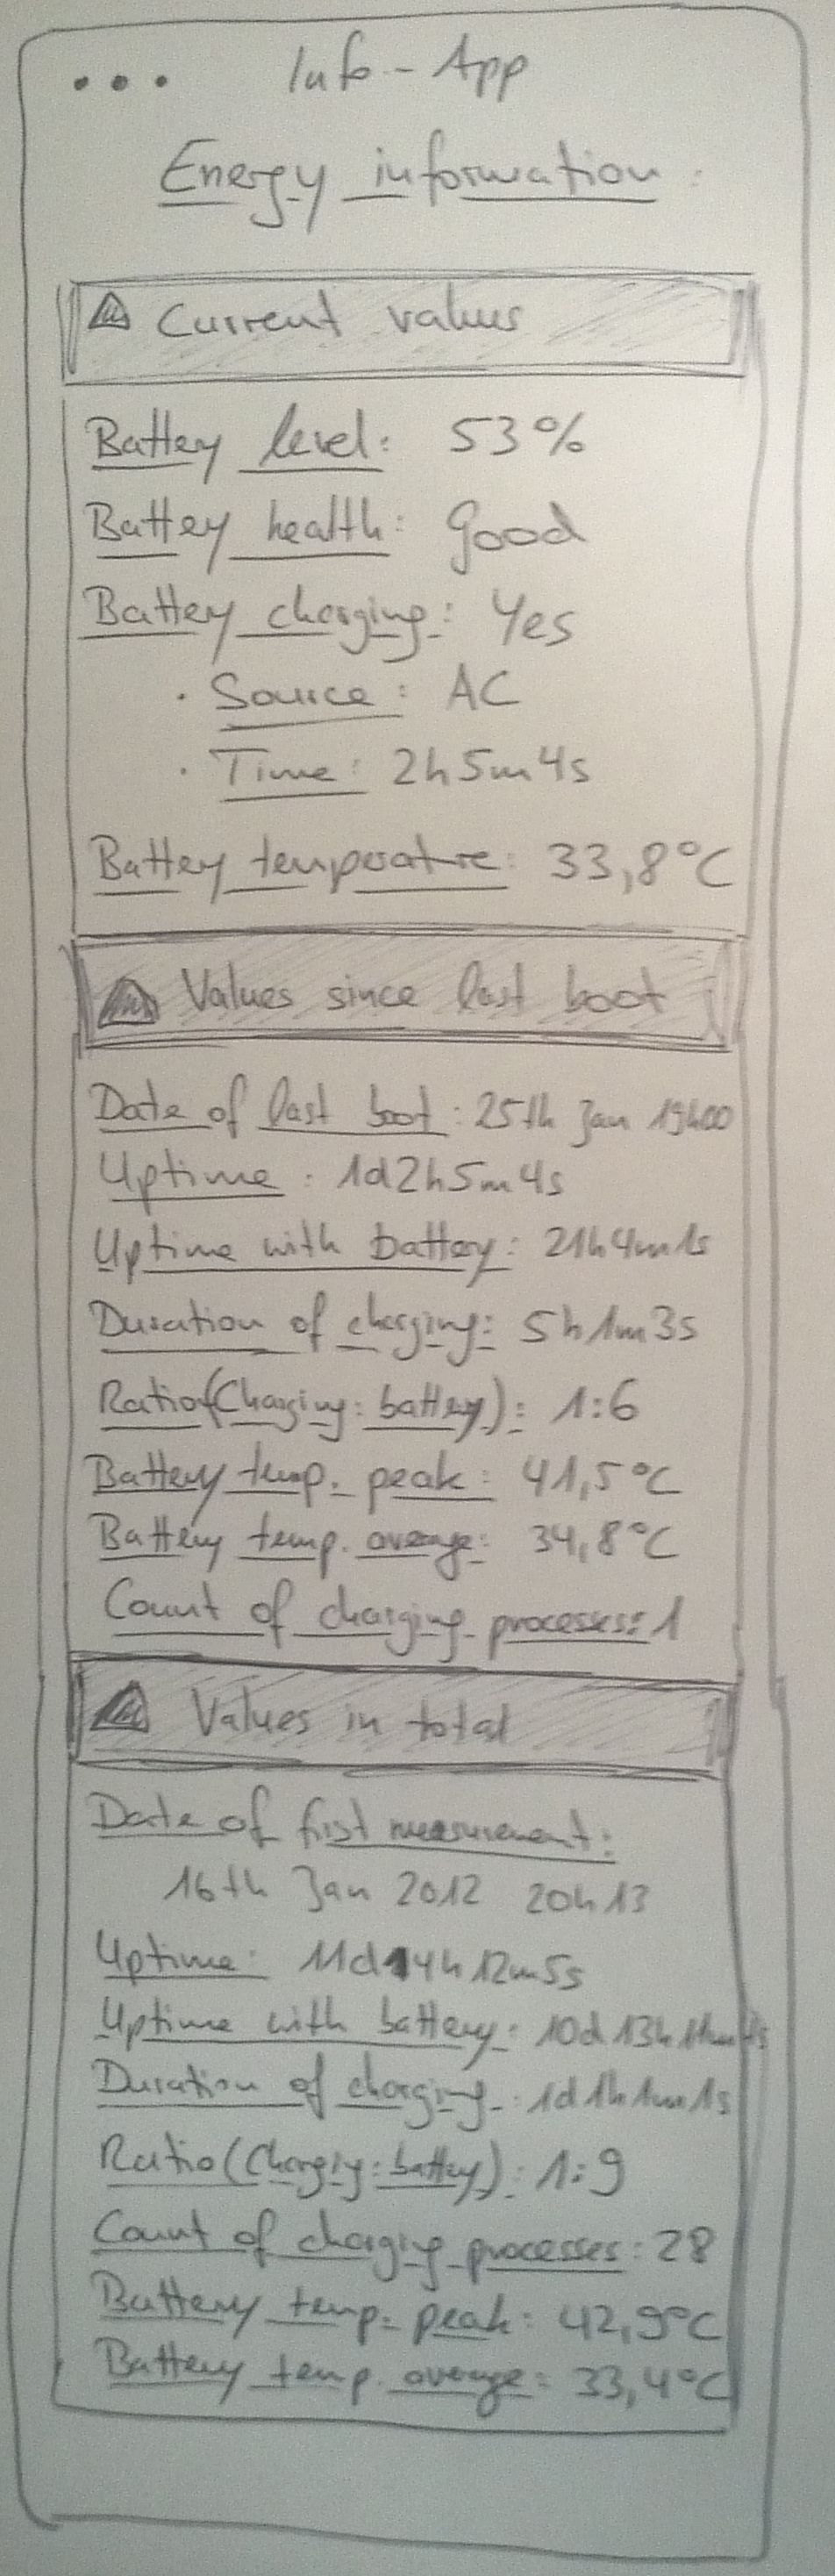 Info-App
Energy information:
Current values
Battery level: 53%
Battery health: good
Battery charging: Yes
· Source: AC
· Time: 2h5m4s
Battery temperature: 33,8°C
Values since last boot
Date of last boot: 25th Jan 19h00
Uptime: 1d2h5m4s
Uptime with battery: 21h4m1s
Duration of charging: 5h1m3s
Ratio(Charging:battery): 1:6
Battery temp. peak: 41,5°C
Battery temp. average: 34,8°C
Count of charging processes: 1
Values in total
Date of first measurement:
16th Jan 2012 20h13
Uptime: 11d14h12m5s
Uptime with battery: 10d 13h
Duration of charging: 1d1h1m1s
Ratio(Chargig:battery): 1:9
Count of charging processes: 28
Battery temp. peak: 42,9°C
Battery temp. average: 33,4°C